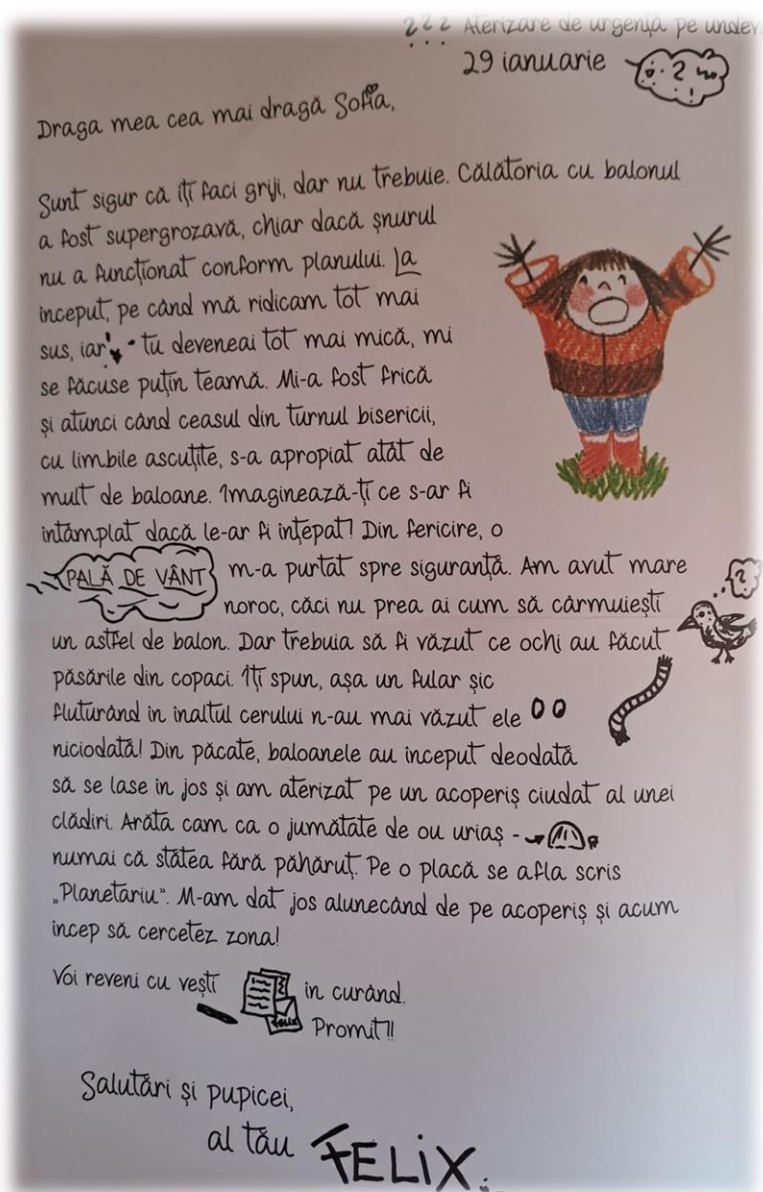 ??? Aterizare de urgență pe undev
29 ianuarie
? !
Draga mea cea mai dragă Sofia,
Sunt sigur că îți faci griji, dar nu trebuie. Călătoria cu balonul
a fost supergrozavă, chiar dacă șnurul
nu a funcționat conform planului. La
început, pe când mă ridicam tot mai
sus, iar tu deveneai tot mai mică, mi
se făcuse puțin teamă. Mi-a fost frică
și atunci când ceasul din turnul bisericii,
cu limbile ascuțite, s-a apropiat atât de
mult de baloane. Imaginează-ți ce s-ar fi
întâmplat dacă le-ar fi înțepat! Din fericire, o
PALĂ DE VÂNT m-a purtat spre siguranță. Am avut mare
noroc, căci nu prea ai cum să cârmuiești
?
un astfel de balon. Dar trebuia să fi văzut ce ochi au făcut
păsările din copaci. Îți spun, așa un fular șic
fluturând în înaltul cerului n-au mai văzut ele
niciodată! Din păcate, baloanele au început deodată
să se lase în jos și am aterizat pe un acoperiș ciudat al unei
clădiri. Arăta cam ca o jumătate de ou uriaș -
numai că stătea fără păhăruț. Pe o placă se afla scris
„Planetariu”. M-am dat jos alunecând de pe acoperiș și acum
încep să cercetez zona!
Voi reveni cu vești în curând.
Felix
Promit!!
Salutări și pupicei,
al tău FELIX.